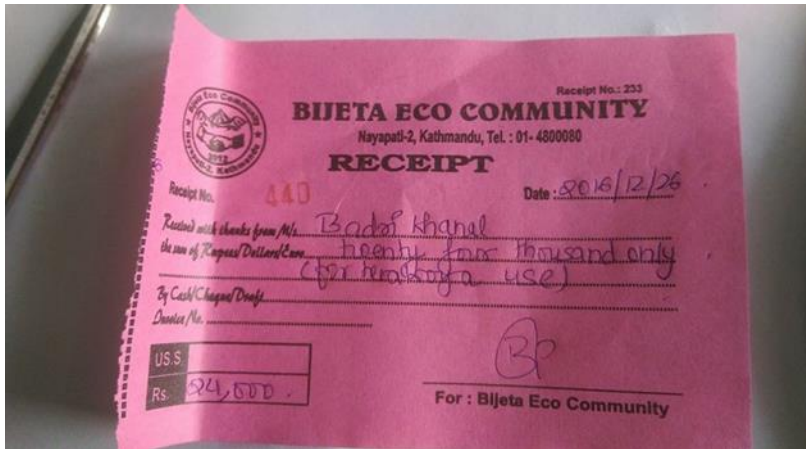 Receipt No.: 233
Bijeta Eco Community
Nayapati-2, Kathmandu
2012
BIJETA ECO COMMUNITY
Nayapati-2, Kathmandu, Tel. : 01- 4800080
RECEIPT
Receipt No. 440
Date : 2016/12/26
Received with thanks from M/s. Badri Khanal
the sum of Rupees/Dollars/Euro twenty four thousand only
(for use)
By Cash/Cheque/Draft
Invoice/No.
US.$
Rs. 24,000.
For : Bijeta Eco Community